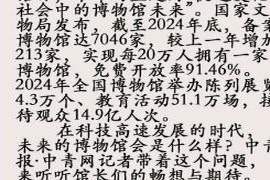 社会中的博物馆未来”。国家文
物局发布，截至2024年底，备案
博物馆达7046家，较上一年增加
213家，实现每20万人拥有一家
博物馆，免费开放率91.46%。
2024年全国博物馆举办陈列展览
4.3万个、教育活动51.1万场，接
待观众14.9亿人次。
在科技高速发展的时代，
未来的博物馆会是什么样？中青
报·中青网记者带着这个问题，
来听听馆长们的畅想与期待。